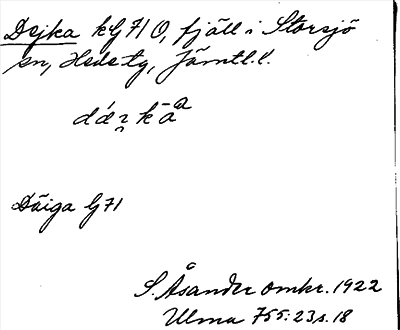 Dejka kG71O, fjäll i Storsjö
sn, Hede tg, Jämtl. l.
Däiga G71
S. Åsander omkr. 1922
Ulma 755:23, s. 18